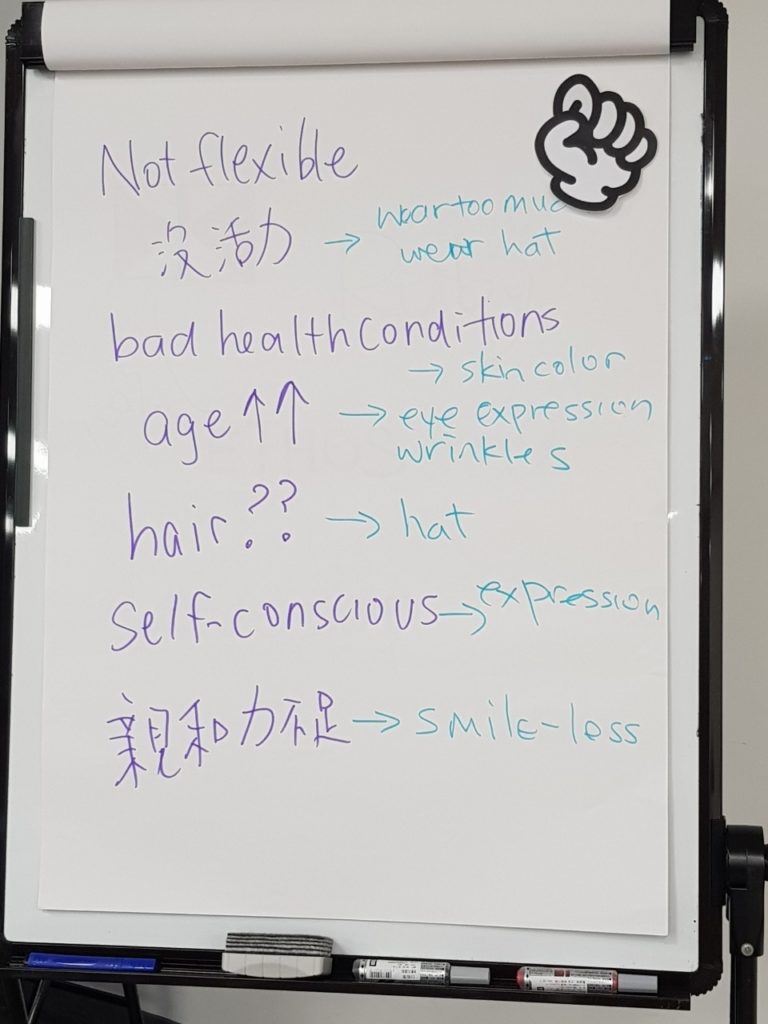 Not flexible
没活力 → wear too
wear hat
bad health conditions
→ skin color
age↑↑ → eye expression
wrinkles
hair?? → hat
self-conscious → expression
親和力不足 → smile-less